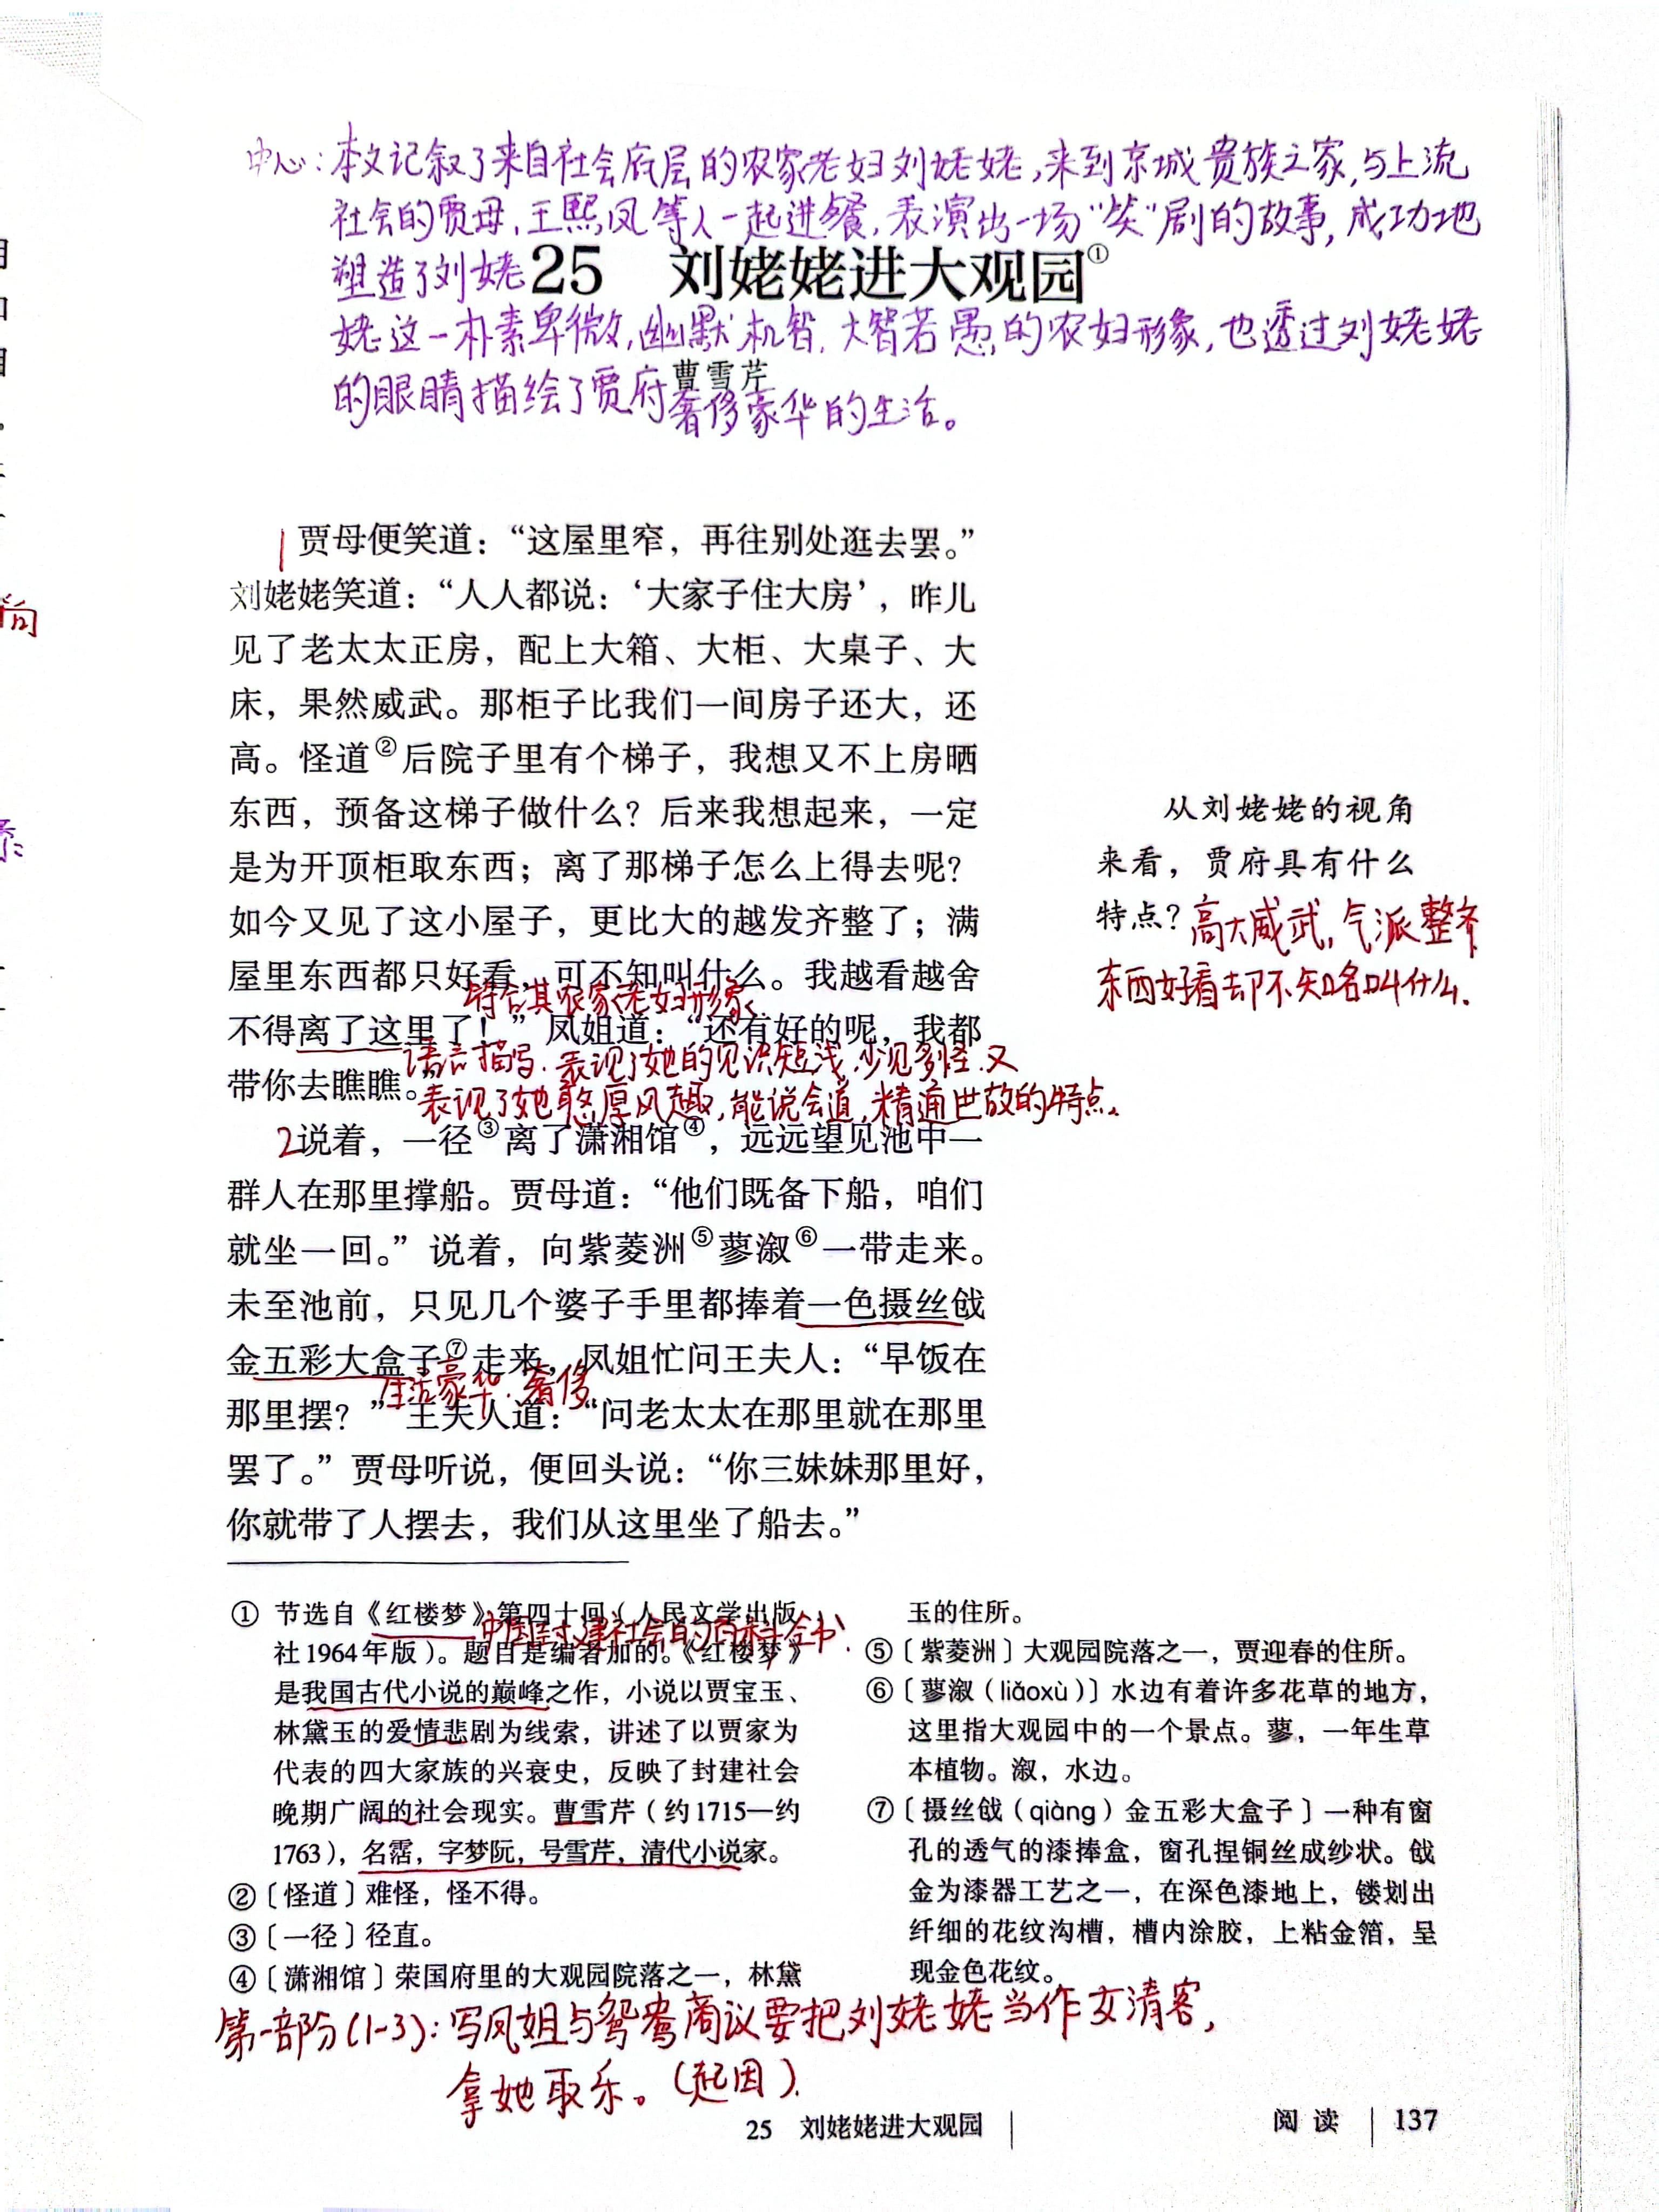 中心：本文记叙了来自社会底层的农家老妇刘姥姥，来到京城贵族之家，与上流
社会的贾母、王熙凤等人一起进餐，表演出一场“笑”剧的故事，成功地
塑造了刘姥
25 刘姥姥进大观园①
姥这一朴素卑微，幽默机智，大智若愚的农妇形象，也透过刘姥姥
曹雪芹
的眼睛描绘了贾府奢侈豪华的生活。
1 贾母便笑道：“这屋里窄，再往别处逛去罢。”
刘姥姥笑道：“人人都说：‘大家子住大房’，昨儿
见了老太太正房，配上大箱、大柜、大桌子、大
床，果然威武。那柜子比我们一间房子还大，还
高。怪道②后院子里有个梯子，我想又不上房晒
东西，预备这梯子做什么？后来我想起来，一定
是为开顶柜取东西；离了那梯子怎么上得去呢？
如今又见了这小屋子，更比大的越发齐整了；满
屋里东西都只好看，可不知叫什么。我越看越舍
符合其农家老妇形象
不得离了这里了！”凤姐道：“还有好的呢，我都
语言描写，表现了她的见识短浅，少见多怪，又
带你去瞧瞧。”
表现了她憨厚风趣，能说会道，精通世故的特点。
从刘姥姥的视角
来看，贾府具有什么
特点？高大威武，气派整齐
东西好看却不知名叫什么.
2 说着，一径③离了潇湘馆④，远远望见池中一
群人在那里撑船。贾母道：“他们既备下船，咱们
就坐一回。”说着，向紫菱洲⑤蓼溆⑥一带走来。
未至池前，只见几个婆子手里都捧着一色摄丝戗
金五彩大盒子⑦走来，凤姐忙问王夫人：“早饭在
生活豪华、奢侈
那里摆？”王夫人道：“问老太太在那里就在那里
罢了。”贾母听说，便回头说：“你三妹妹那里好，
你就带了人摆去，我们从这里坐了船去。”
① 节选自《红楼梦》第四十回（人民文学出版
中国封建社会的百科全书.
社1964年版）。题目是编者加的。《红楼梦》
是我国古代小说的巅峰之作，小说以贾宝玉、
林黛玉的爱情悲剧为线索，讲述了以贾家为
代表的四大家族的兴衰史，反映了封建社会
晚期广阔的社会现实。曹雪芹（约1715—约
1763），名霑，字梦阮，号雪芹，清代小说家。
②〔怪道〕难怪，怪不得。
③〔一径〕径直。
④〔潇湘馆〕荣国府里的大观园院落之一，林黛
玉的住所。
⑤〔紫菱洲〕大观园院落之一，贾迎春的住所。
⑥〔蓼溆（liǎoxù）〕水边有着许多花草的地方，
这里指大观园中的一个景点。蓼，一年生草
本植物。溆，水边。
⑦〔摄丝戗（qiàng）金五彩大盒子〕一种有窗
孔的透气的漆捧盒，窗孔捏铜丝成纱状。戗
金为漆器工艺之一，在深色漆地上，镂划出
纤细的花纹沟槽，槽内涂胶，上粘金箔，呈
现金色花纹。
第一部分(1-3)：写凤姐与鸳鸯商议要把刘姥姥当作女清客，
拿她取乐。(起因).
25 刘姥姥进大观园
阅读 137